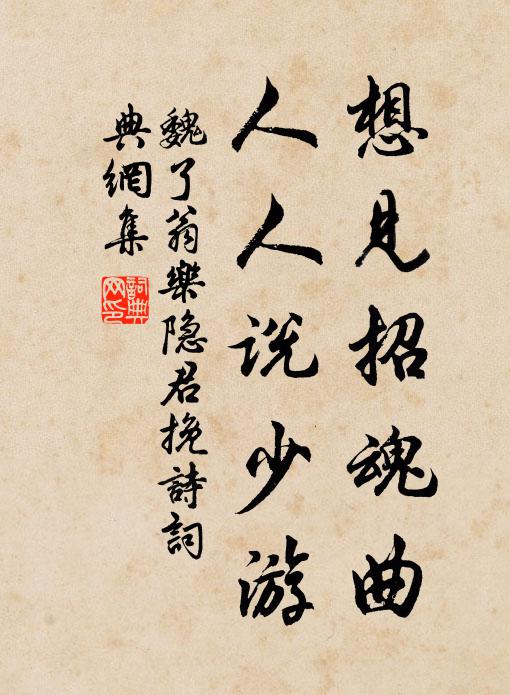 想見招魂曲
人人説少游
魏了翁樂隐君挽詩詞
典網集
詞典
网印